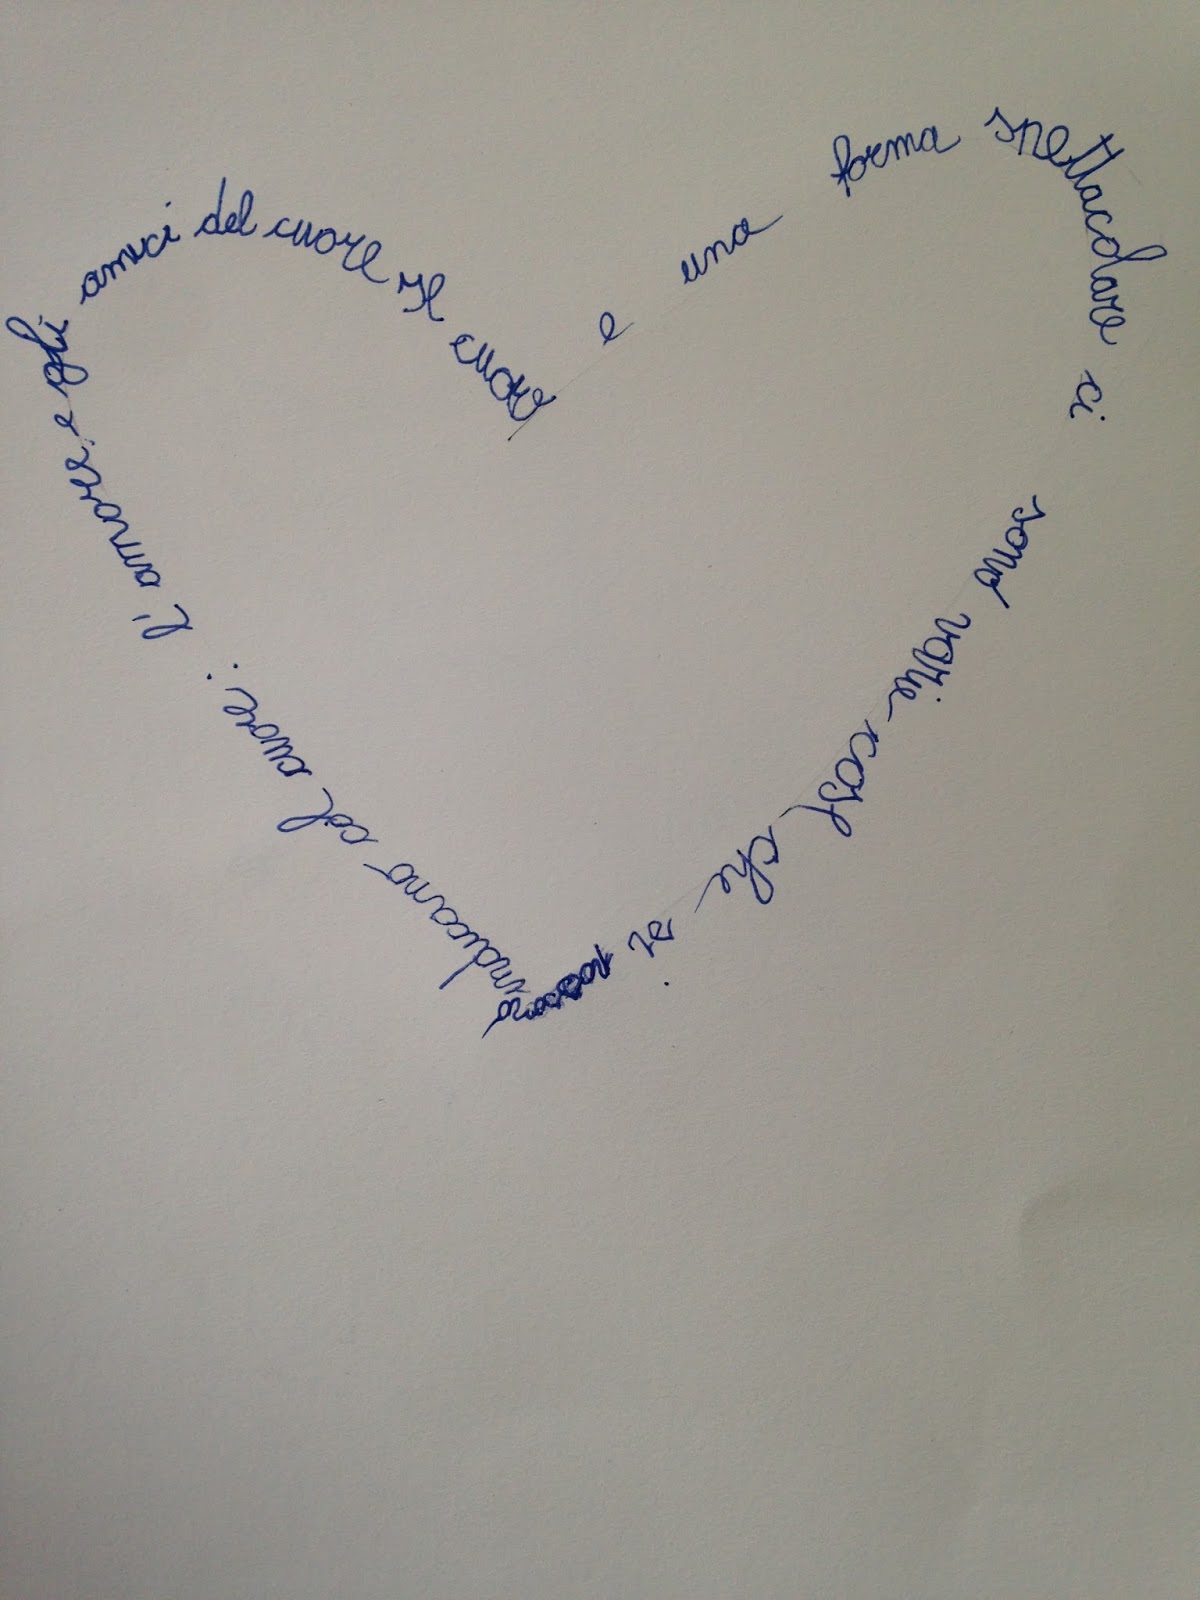 Il cuore e una forma spettacolare ci sono varie cose che si indicano col cuore: l'amore e gli amici del cuore